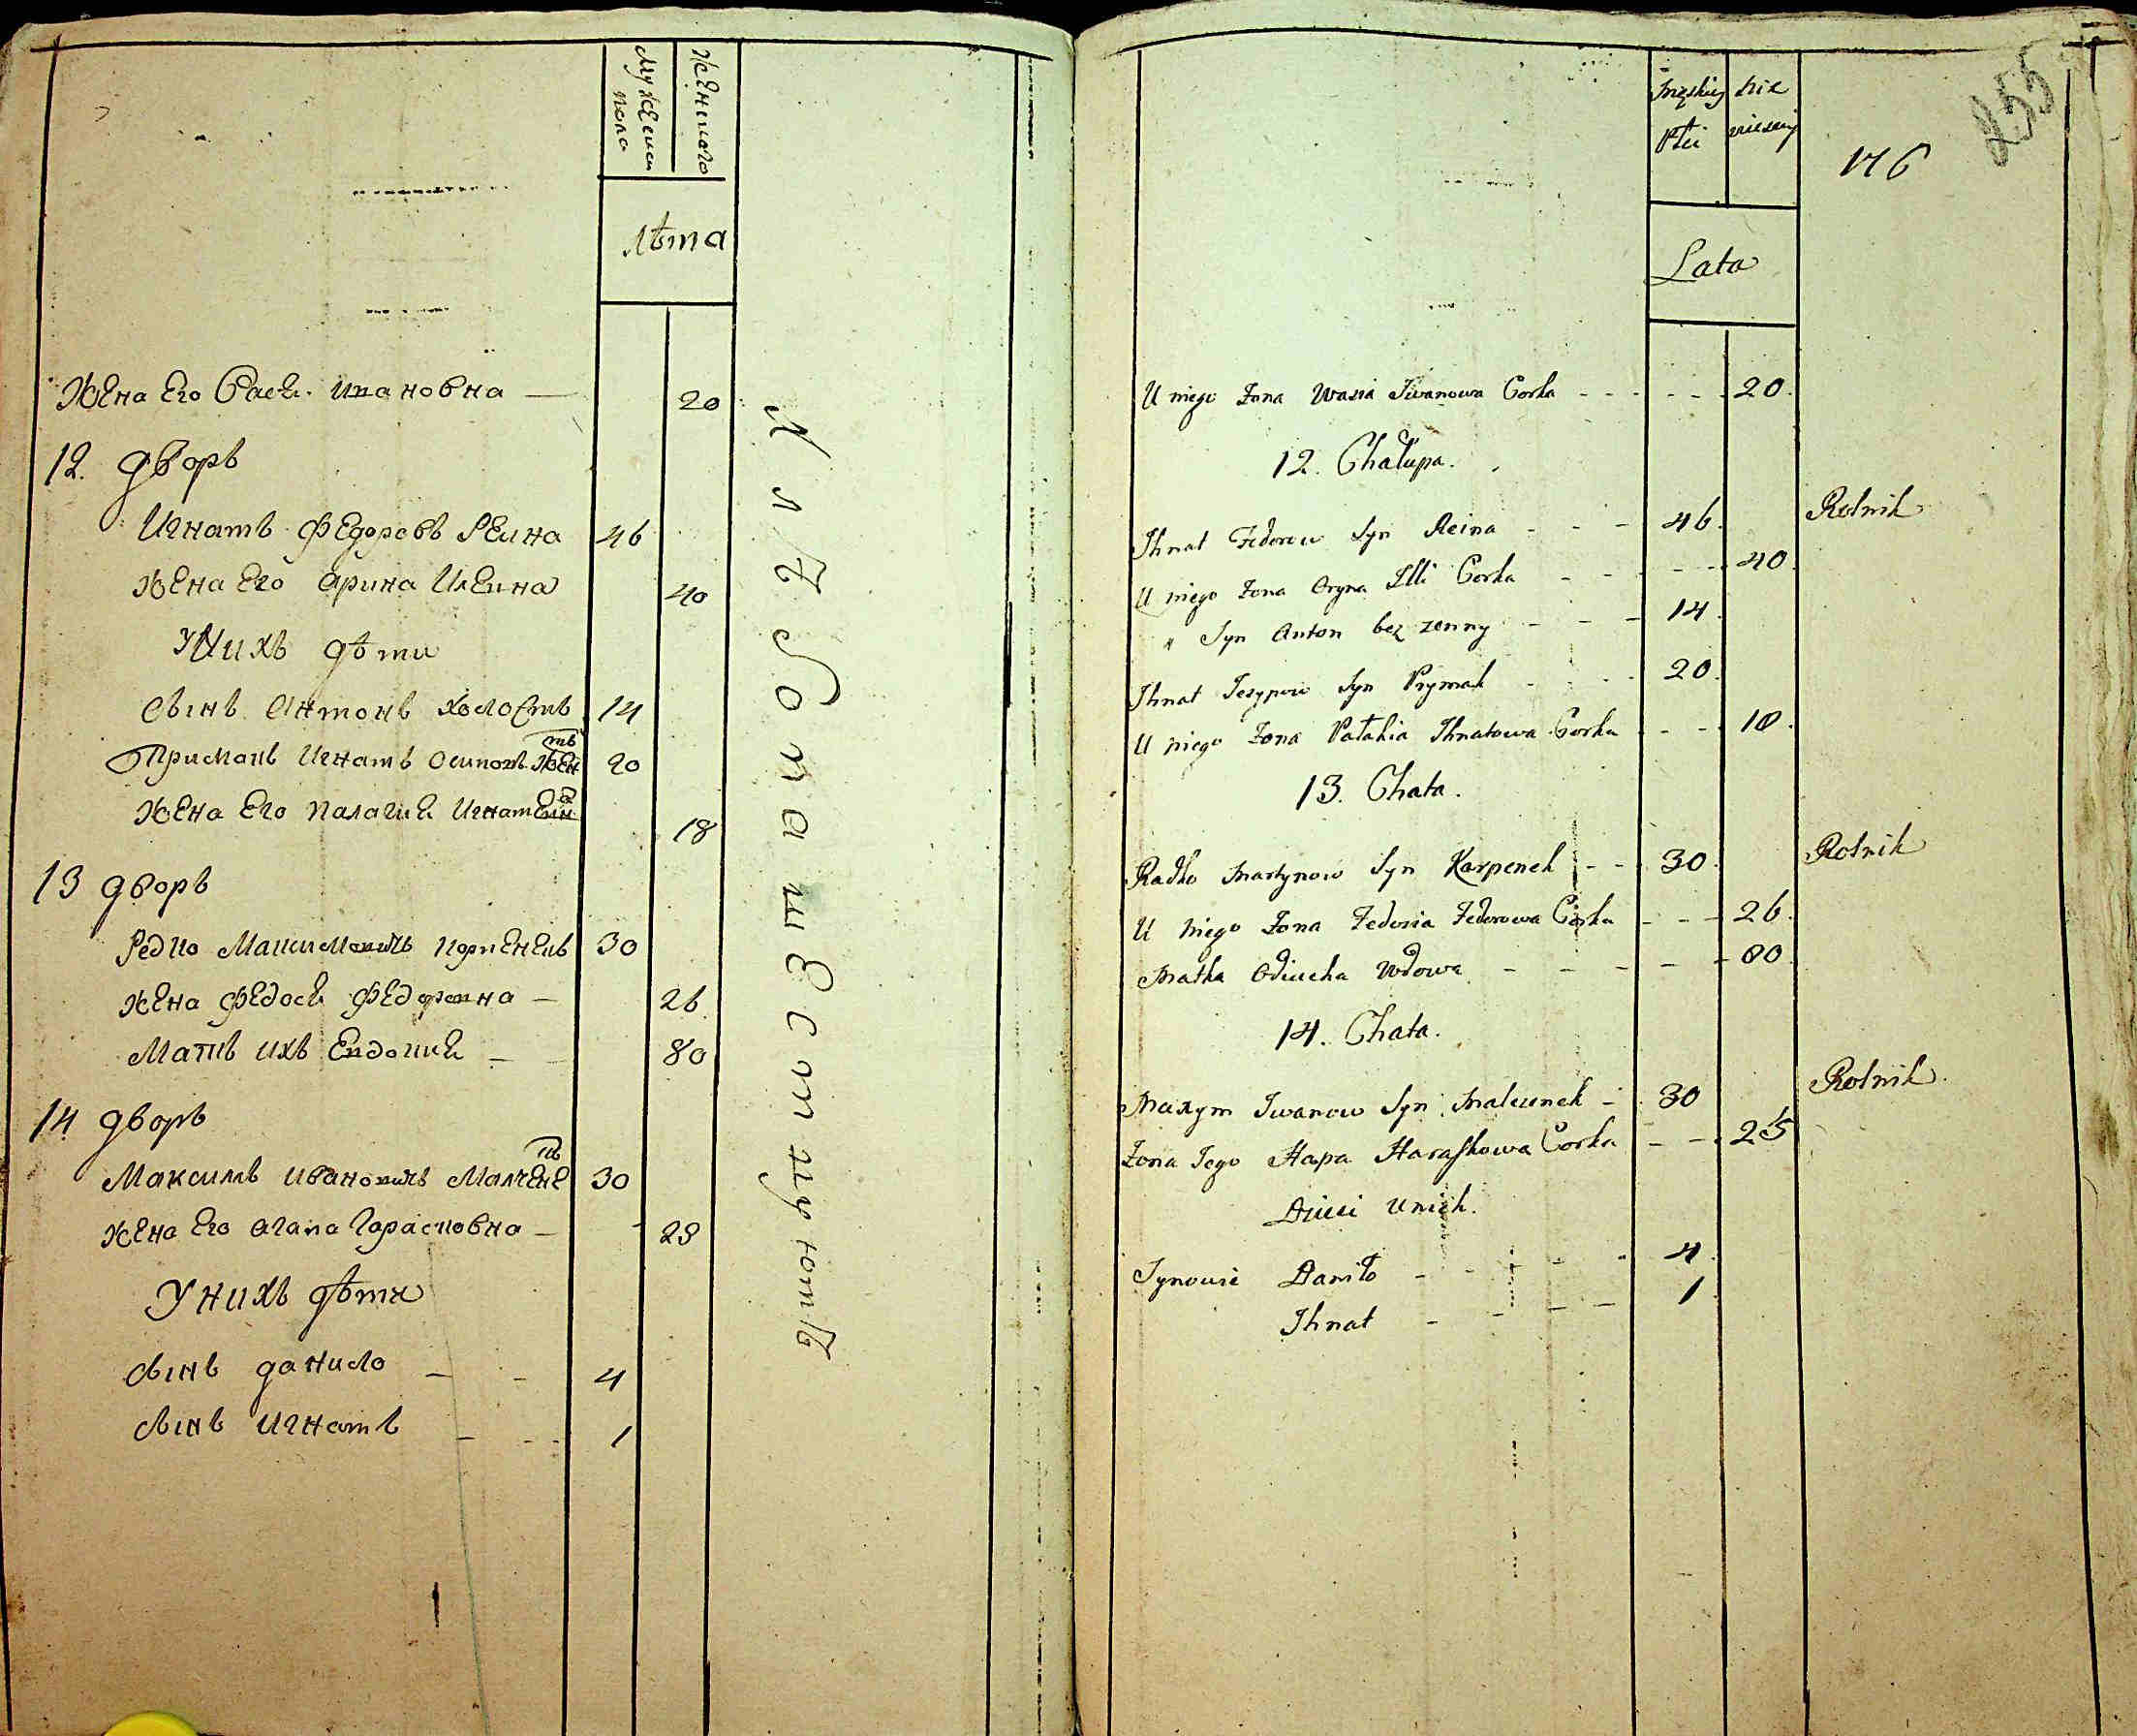 мужеска
пола
женскаго
лѣта
Жена Его Васе. Ивановна — 20
12. дворъ
Игнатъ Федоровъ Реина 46
Жена Его Арина Илеина 40
У Нихъ дѣти
Сынъ Антонъ холостъ 14
Примакъ Игнатъ Осиповъ жен 20
Жена Его Палагия Игнатеин 18
13 дворъ
Редко 30
Жена Федося Федоровна — 26
Мать ихъ Евдокия — 80
14 дворъ
Максимъ Ивановичъ Малчене 30
Жена Его Агапа Гарасковна — 25
У нихъ дѣти
Сынъ данило — - 4
Сынъ Игнатъ — - 1
Хлѣбопашествуютъ
255
176
męskiey
Płci
Lata
U niego Żona Wasia Iwanowa Corka - - - 20.
12. Chałupa.
Ihnat Fedorow Syn Reina - - - 46. Rolnik
U niego Żona Oryna Illi Corka - - - 40.
" Syn Anton bez zenny - - - 14.
Ihnat Jezypow Syn Prymak - - - 20.
U niego Żona Pałahia Ihnatowa Corka - - 18.
13. Chata.
Radko Martynow Syn Karpenek - - 30. Rolnik
U niego Żona Fedosia Fedorowa Córka - - - 26.
Matka Wdowa - - - - - 80.
14. Chata.
Maxym Iwanow Syn Malczenek - 30 Rolnik.
Żona Jego Hapa Haraskowa Corka - - 25
Dzieci u nich.
Synowie Daniło - - - - 4.
Ihnat - - - - 1.